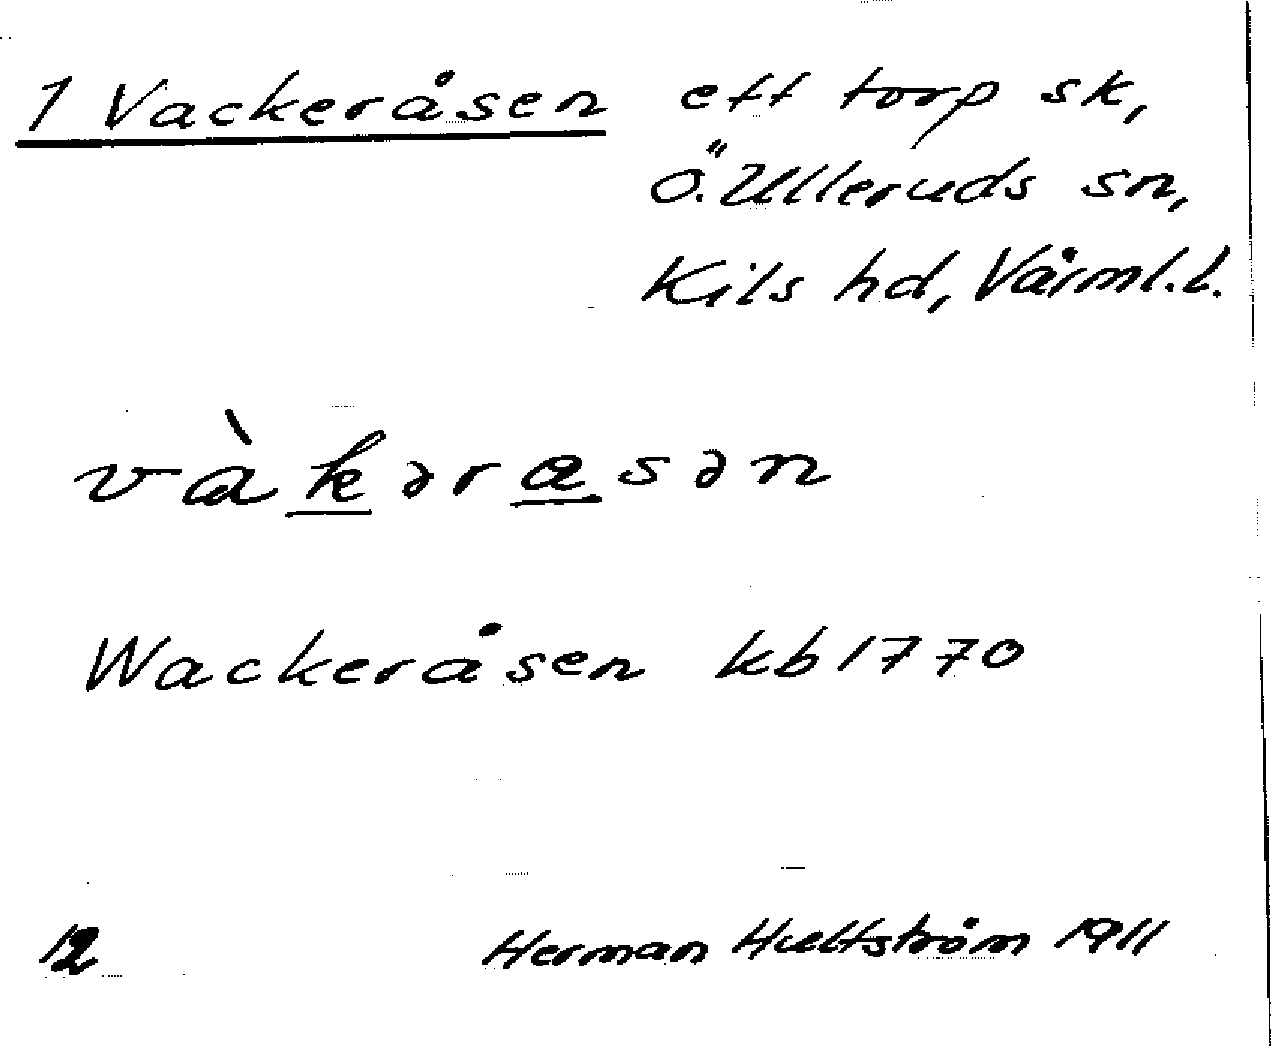 1 Vackeråsen ett torp sk,
Ö. Ulleruds sn,
Kils hd, Värml.l.
vàkərasən
Wackeråsen kb 1770
12
Herman Hultström 1911